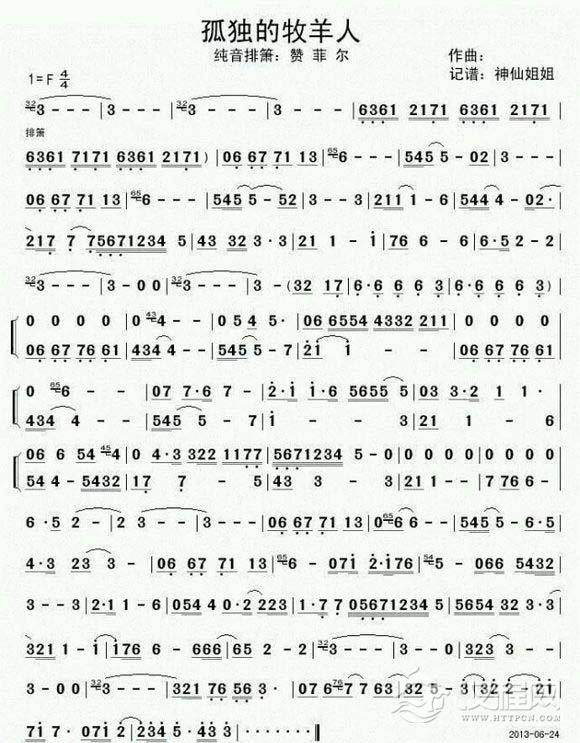 孤独的牧羊人
纯音排箫：赞 菲 尔
作曲：
1=F 4/4
记谱：神仙姐姐
32 3 - - - | 3 - - - | 32 3 - - - | 3 - - - | ( 6361 2171 6361 2171 |
排箫
6361 7171 6361 2171 ) | 06 67 71 13 | 65 6 - - - | 545 5 - 02 | 3 - - - |
06 67 71 13 | 65 6 - - - | 545 5 - 52 | 3 - - - | 211 1 - 6 | 544 4 - 02· |
217 7 75671234 5 | 43 32 3·3 | 21 1 - 1 | 76 6 - 6 | 6·5 2 - 2 |
32 3 - - - | 3 - 0 0 | 32 3 - - - | 3 - - ( 32 17 | 6·6 6 6 6 3 | 6·6 6 6 3 ) |
0 0 0 0 | 0 43 4 - - | 0 54 5· | 06 6554 4332 211 | 0 0 0 0 |
06 67 76 61 | 434 4 - | 545 5 - 7 | 21 1 - - | 06 67 76 61 |
0 65 6 - - | 07 7·6 7 - | 2·1 1·6 5655 5 | 03 3·2 1 1· |
434 4 - - | 545 5 - 7 | 1 - - 3 | 21 1 - 6 |
06 6 54 45 4 | 0 4·3 322 1177 | 5671234 5 - 0 | 0 0 0 0 | 0 0 0 0 |
54 4 - 5432 | 17 7 - 5 | 43 3 - 3 | 21 1 - 1 | 7 766 - |
6·5 2 - | 2 - - - | 32 3 - - - | 3 - - - | 06 67 71 13 | 065 6 6 - - | 545 5 - 6·5 |
4·3 23 3 - | 06 67 71 13 | 65 6 - 071 2·176 | 54 5 - 066 5432 |
3 - - 3 | 2·1 1 - 6 | 0544 40·2 223 | 1·7 7 05671234 5 | 5654 32 3·3 |
321 1 - 1 | 176 6 - 666 | 65 2 - 2 | 32 3 - - - | 3 - - - | 323 3 - - |
3 - 0 0 | 32 3 - - - | 321 76 56 3· | 07 76 7 7 63 | 32 5 - 3 | 2 21 2 - |
71 7· 071 2 | 234 5·43 3 | - - - - - - ‖
2013-06-24
WWW.HTTPCN.COM